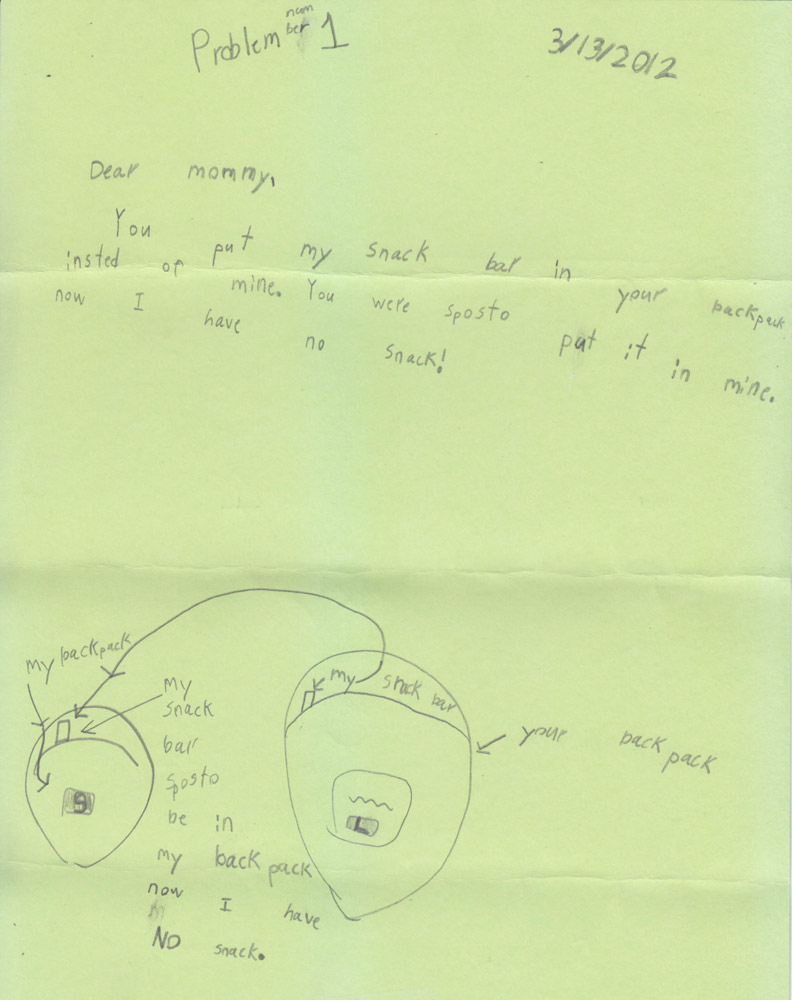 Problem number 1
3/13/2012
Dear mommy,
You put my snack bar in your backpack
insted of mine. You were sposto put it in mine.
now I have no snack!
my backpack
my
snack
bar
sposto
be in
my back pack
now I have
NO snack.
my snack bar
your back pack
S
L